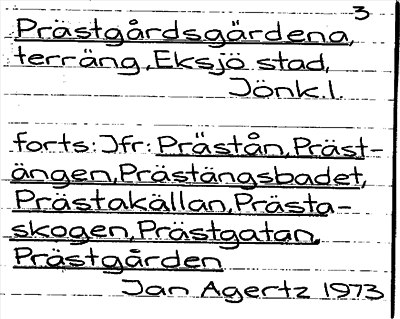 3
Prästgårdsgärdena,
terräng, Eksjö stad,
Jönk.l.
forts: Jfr: Prästån, Präst-
ängen, Prästängsbadet,
Prästakällan, Prästa-
skogen, Prästgatan,
Prästgården
Jan Agertz 1973